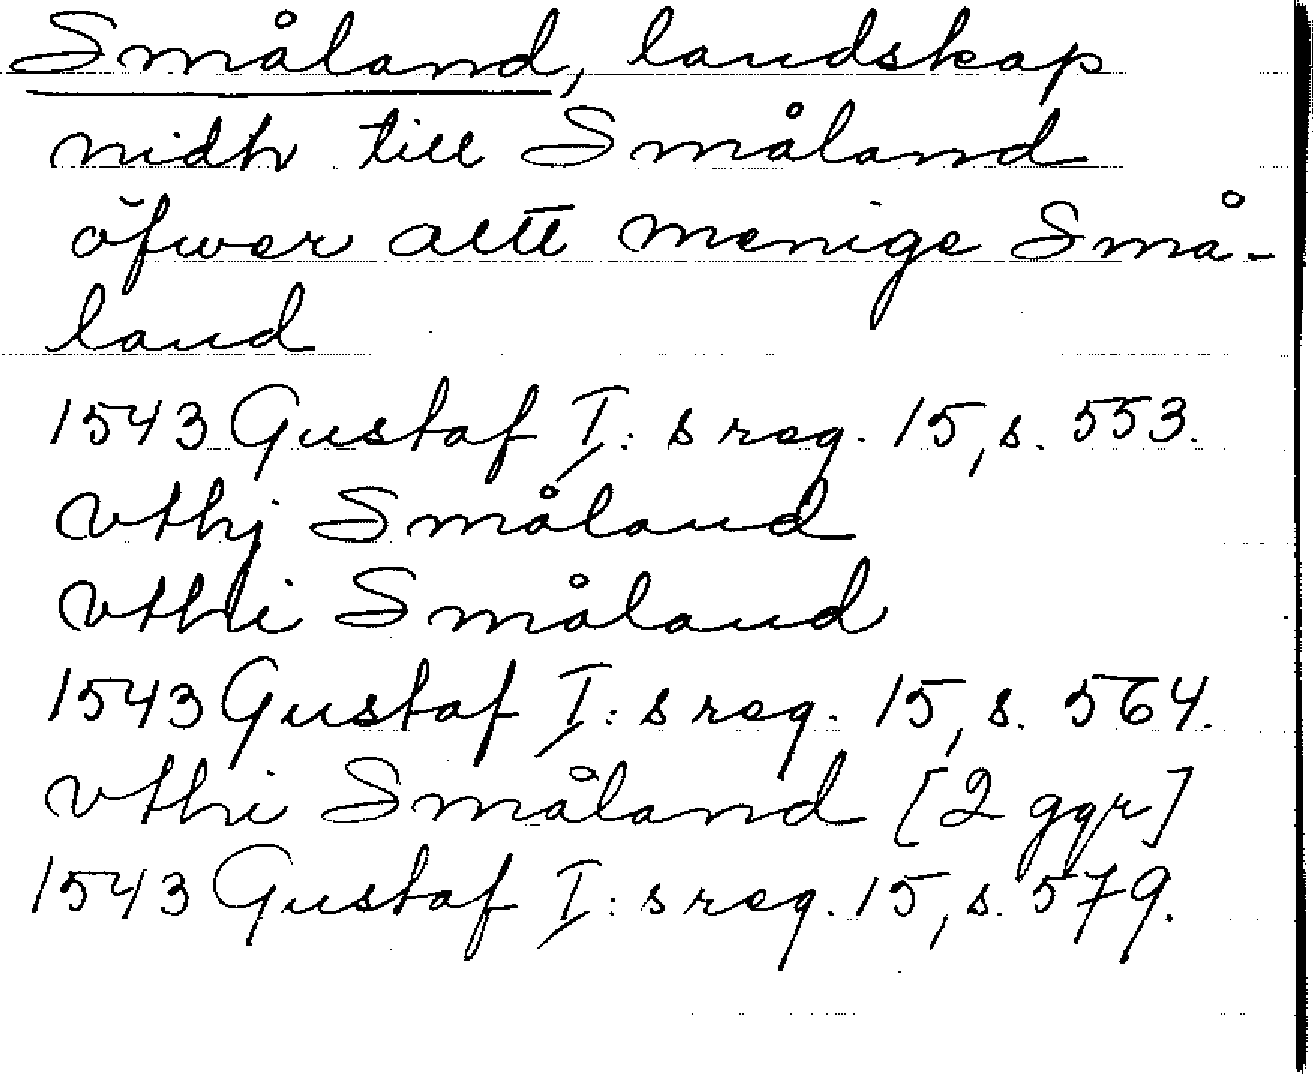 Småland, landskap
nidh till Småland
öfwer altt menige Små-
land
1543 Gustaf I:s reg. 15, s. 553.
vthj Småland
vthi Småland
1543 Gustaf I:s reg. 15, s. 564.
vthi Småland [2 ggr]
1543 Gustaf I:s reg. 15, s. 579.